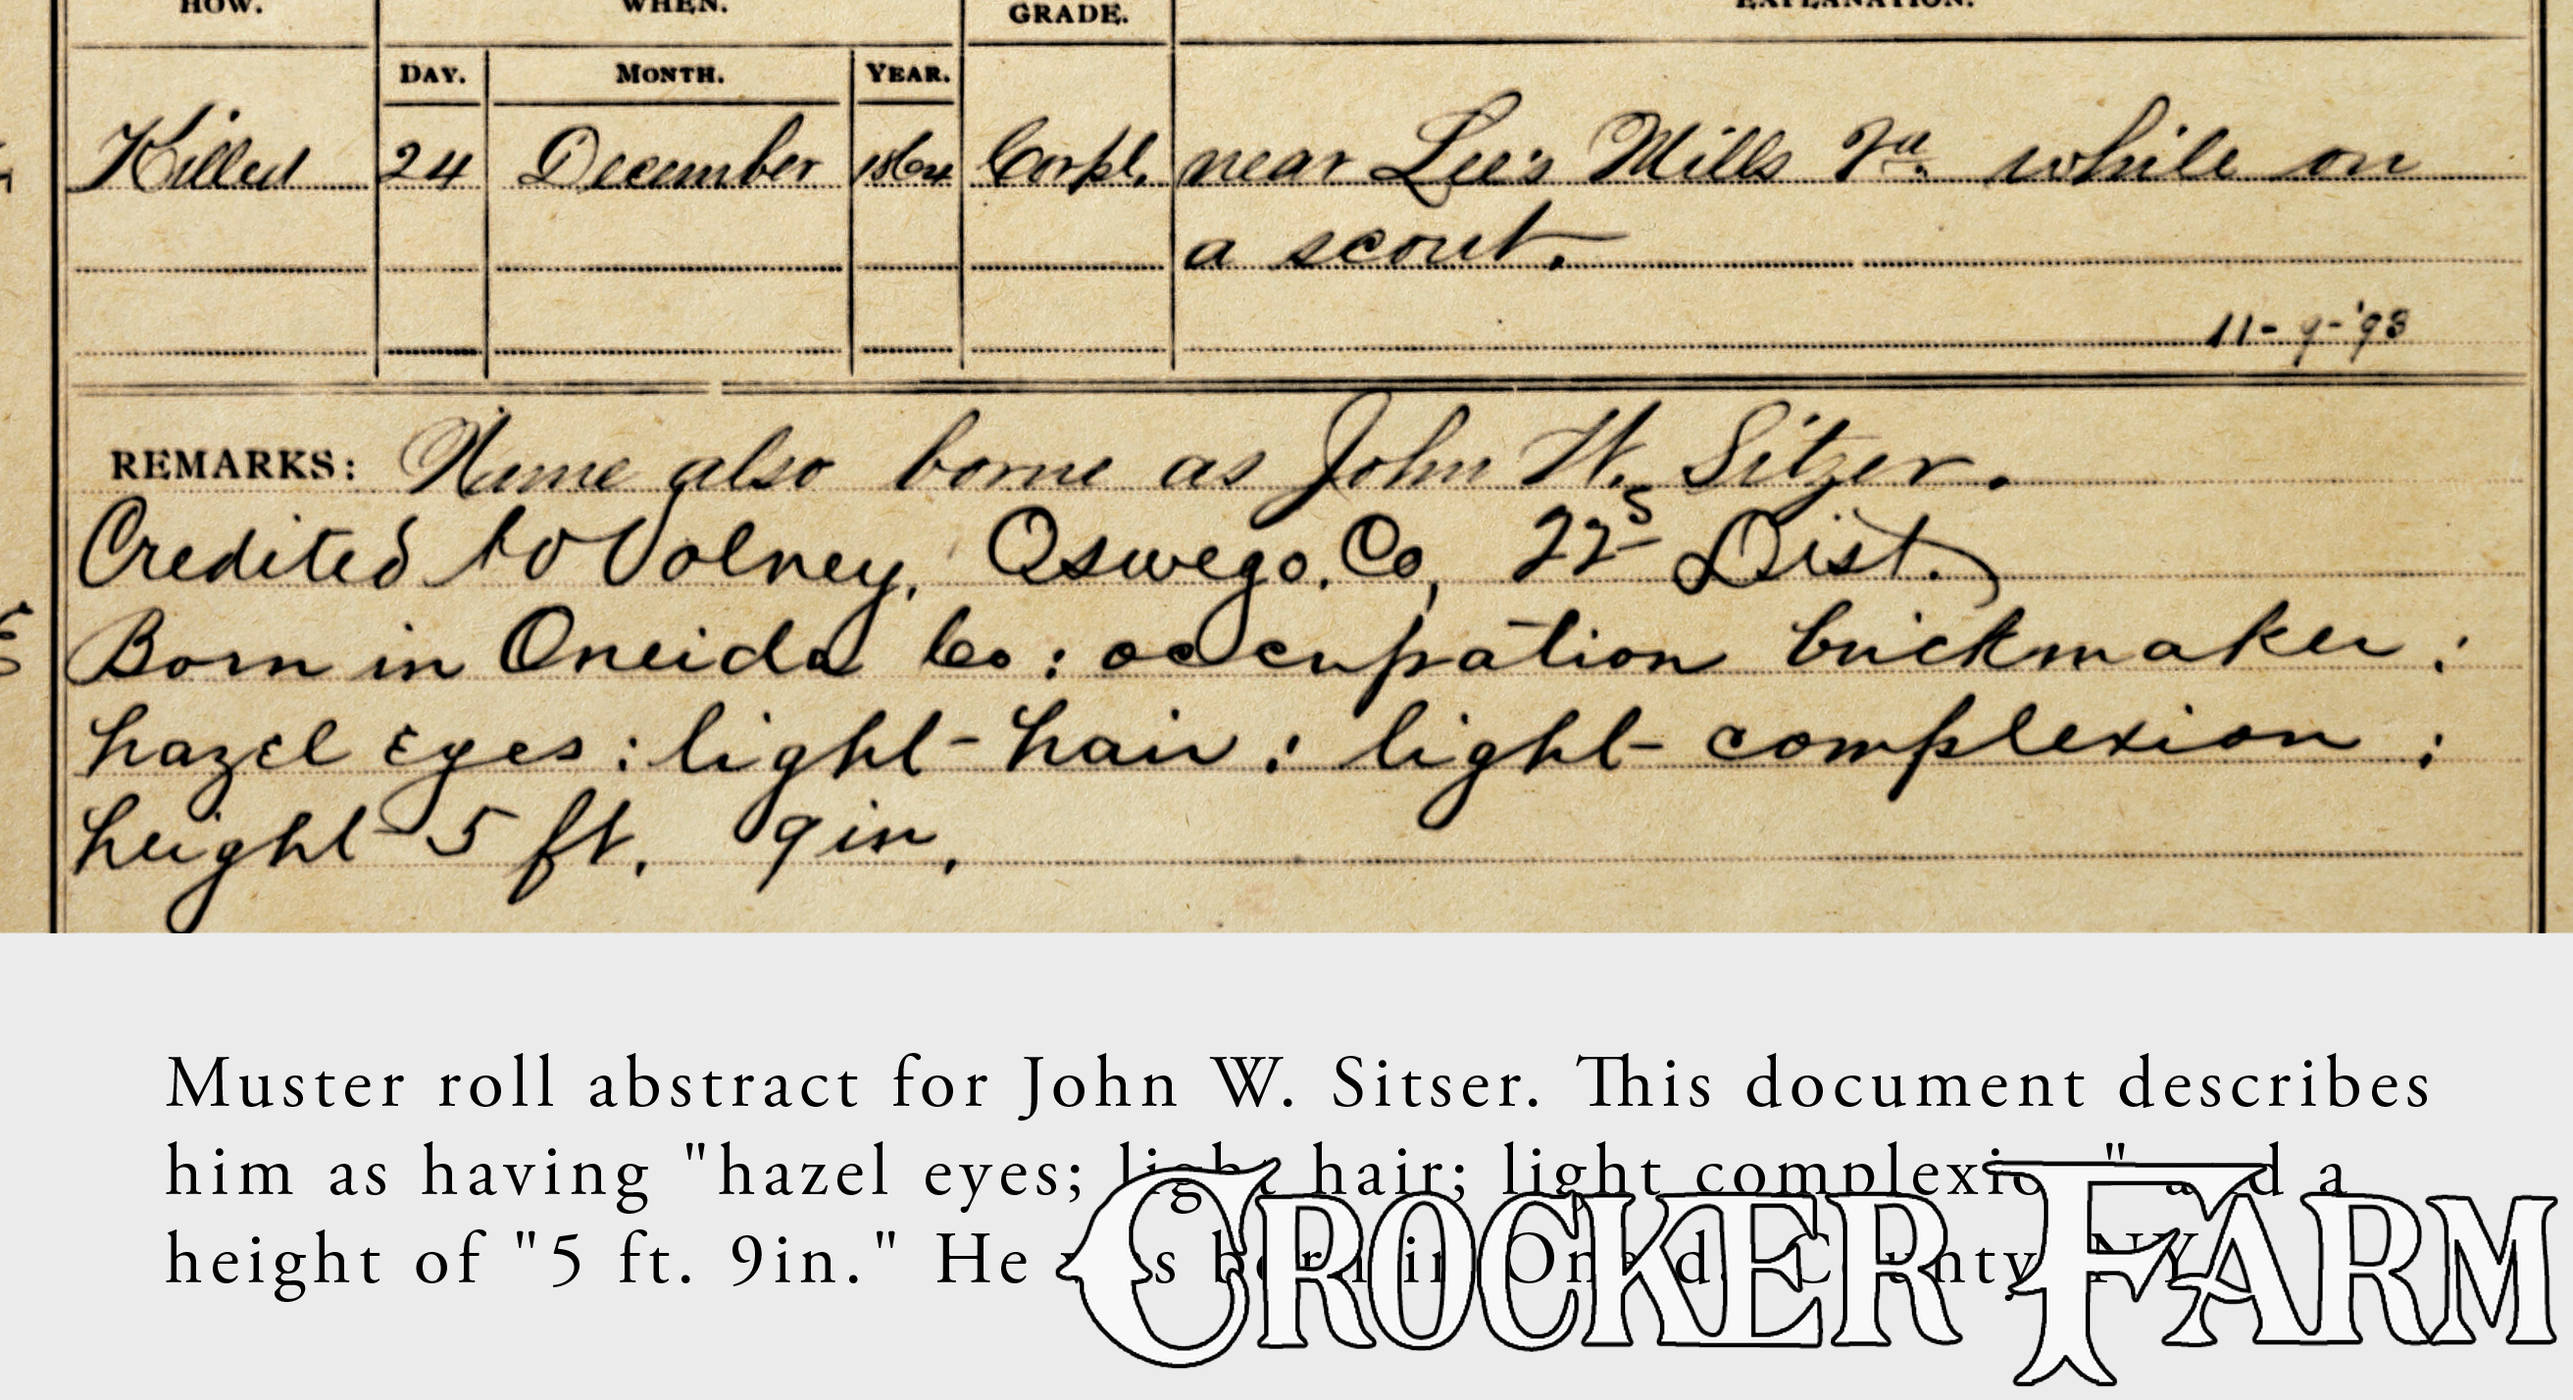 HOW. WHEN. GRADE. EXPLANATION.
DAY. MONTH. YEAR.
Killed 24 December 1864 Corpl. near Lee's Mills Va. while on
a scout.
11-9-'93
REMARKS: Name also borne as John W. Sitzer.
Credited to Volney, Oswego, Co, 22 Dist.
Born in Oneida Co: occupation brickmaker;
hazel eyes: light-hair: light complexion:
height 5 ft. 9in.
Muster roll abstract for John W. Sitser. This document describes
him as having "hazel eyes; light hair; light complexion" and a
height of "5 ft. 9in." He was born in Oneida County, NY.
CROCKER FARM